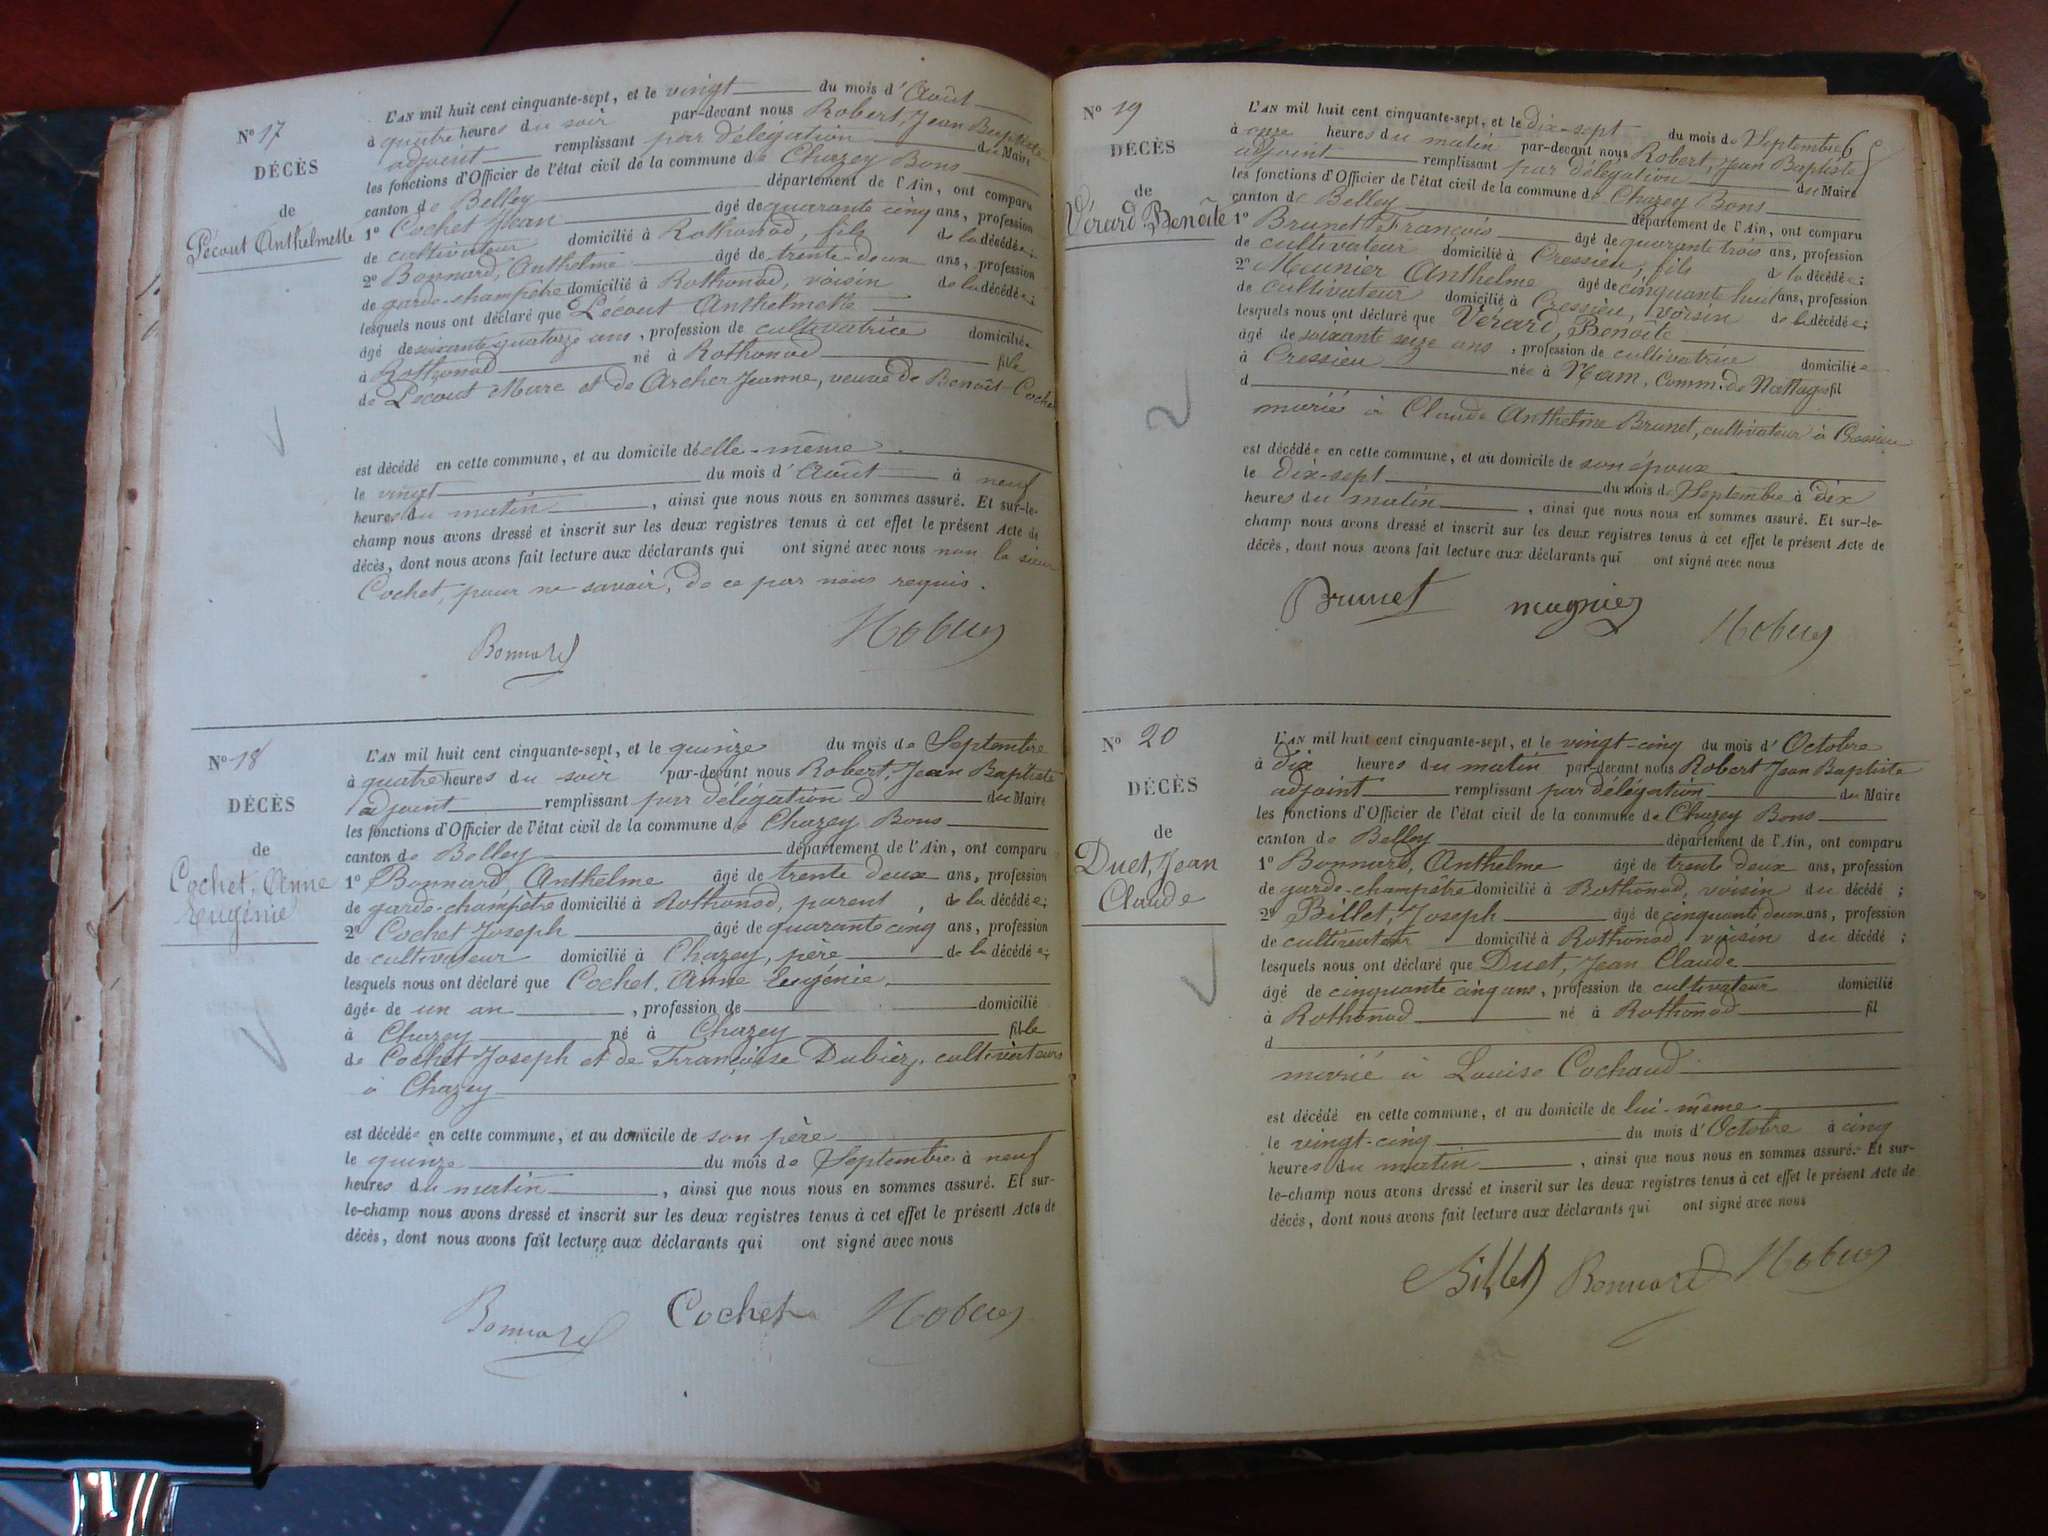 N° 17
DÉCÈS
de
Pécout Anthelmette
L'AN mil huit cent cinquante-sept, et le vingt du mois d'Août
à quatre heures du soir par-devant nous Robert, Jean Baptiste
adjoint remplissant par délégation du Maire
les fonctions d'Officier de l'état civil de la commune de Chazey Bons
canton de Belley département de l'Ain, ont comparu
1° Cochet Jean âgé de quarante cinq ans, profession
de cultivateur domicilié à Rothonod, fils de la décédée;
2° Bonnard, Anthelme âgé de trente-deux ans, profession
de garde-champêtre domicilié à Rothonod, voisin de la décédée;
lesquels nous ont déclaré que Pécout Anthelmette
âgé de soixante quatorze ans, profession de cultivatrice domiciliée
à Rothonod né à Rothonod fille
de Pécout Marc et de Archer Jeanne, veuve de Benoît Cochet
est décédé en cette commune, et au domicile d'elle-même
le vingt du mois d'Août à neuf
heures du matin, ainsi que nous nous en sommes assuré. Et sur-le-
champ nous avons dressé et inscrit sur les deux registres tenus à cet effet le présent Acte de
décès, dont nous avons fait lecture aux déclarants qui ont signé avec nous non le sieur
Cochet, pour ne savoir, de ce par nous requis.
Bonnard
N° 18
DÉCÈS
de
Cochet, Anne
Eugénie
L'AN mil huit cent cinquante-sept, et le quinze du mois de Septembre
à quatre heures du soir par-devant nous Robert, Jean Baptiste
adjoint remplissant par délégation d du Maire
les fonctions d'Officier de l'état civil de la commune de Chazey Bons
canton de Belley département de l'Ain, ont comparu
1° Bonnard, Anthelme âgé de trente deux ans, profession
de garde-champêtre domicilié à Rothonod, parent, de la décédée;
2° Cochet Joseph âgé de quarante cinq ans, profession
de cultivateur domicilié à Chazey, père de la décédée;
lesquels nous ont déclaré que Cochet, Anne Eugénie,
âgée de un an, profession de domicilié
à Chazey né à Chazey fille
de Cochet Joseph et de Françoise Dubiez, cultivateurs
à Chazey
est décédée en cette commune, et au domicile de son père
le quinze du mois de Septembre à neuf
heures du matin, ainsi que nous nous en sommes assuré. Et sur-
le-champ nous avons dressé et inscrit sur les deux registres tenus à cet effet le présent Acte de
décès, dont nous avons fait lecture aux déclarants qui ont signé avec nous
Bonnard Cochet
N° 19
DÉCÈS
de
Vérard Benoîte
L'AN mil huit cent cinquante-sept, et le dix-sept du mois de Septembre
à onze heures du matin par-devant nous Robert, Jean Baptiste
adjoint remplissant par délégation du Maire
les fonctions d'Officier de l'état civil de la commune de Chazey Bons
canton de Belley département de l'Ain, ont comparu
1° Brunet François âgé de quarante trois ans, profession
de cultivateur domicilié à Cressieu, fils de la décédée;
2° Meunier Anthelme âgé de cinquante huit ans, profession
de cultivateur domicilié à Cressieu, voisin de la décédée;
lesquels nous ont déclaré que Vérard, Benoîte
âgé de soixante seize ans, profession de cultivatrice domiciliée
à Cressieu née à Nam, Comm. de Nattages fil
d
marié à Claude Anthelme Brunet, cultivateur à Cressieu
est décédée en cette commune, et au domicile de son époux
le dix-sept du mois de Septembre à dix
heures du matin, ainsi que nous nous en sommes assuré. Et sur-le-
champ nous avons dressé et inscrit sur les deux registres tenus à cet effet le présent Acte de
décès, dont nous avons fait lecture aux déclarants qui ont signé avec nous
Brunet
N° 20
DÉCÈS
de
Duet, Jean
Claude
L'AN mil huit cent cinquante-sept, et le vingt-cinq du mois d'Octobre
à dix heures du matin par-devant nous Robert Jean Baptiste
adjoint remplissant par délégation du Maire
les fonctions d'Officier de l'état civil de la commune de Chazey Bons
canton de Belley département de l'Ain, ont comparu
1° Bonnard, Anthelme âgé de trente deux ans, profession
de garde-champêtre domicilié à Rothonod, voisin du décédé;
2° Billet, Joseph âgé de cinquante deux ans, profession
de cultivateur domicilié à Rothonod voisin du décédé;
lesquels nous ont déclaré que Duet, Jean Claude
âgé de cinquante cinq ans, profession de cultivateur domicilié
à Rothonod né à Rothonod fil
d
marié à Louise Cochaud
est décédé en cette commune, et au domicile de lui-même
le vingt-cinq du mois d'Octobre à cinq
heures du matin, ainsi que nous nous en sommes assuré. Et sur-
le-champ nous avons dressé et inscrit sur les deux registres tenus à cet effet le présent Acte de
décès, dont nous avons fait lecture aux déclarants qui ont signé avec nous
Billet Bonnard